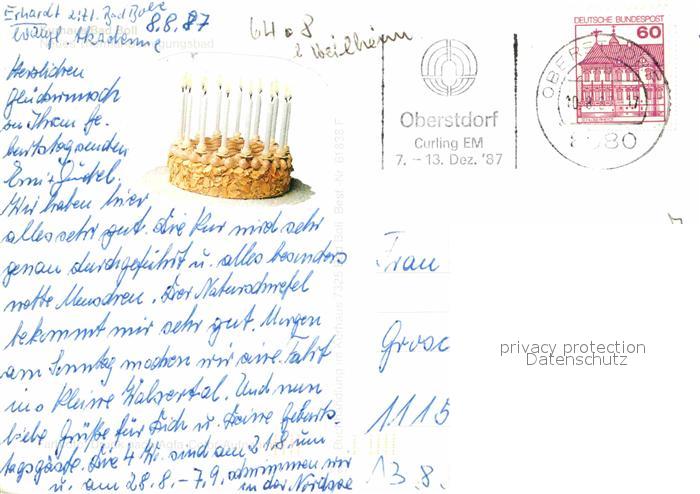 Erhardt z.Zt. Bad Boll
8.8.87
Akademie
64 8
Weilheim
DEUTSCHE BUNDESPOST
60
Oberstdorf
Curling EM
7. - 13. Dez. '87
8980
Herzlichen
Glückwunsch
zu Ihrem Ge-
burtstag senden
Wir haben hier
alles sehr gut. Die Kur wird sehr
genau durchgeführt u. alles besonders
nette Menschen. Der Naturschwefel
bekommt mir sehr gut. Morgen
am Sonntag machen wir eine Fahrt
ins kleine Walsertal. Und nun
liebe Grüße für Dich u. Deine Geburts-
tagsgäste. Die 4 W. sind am 21.8. um
u. am 28.8. - 7.9. schwimmen wir
in der Nordsee
Frau
Grose
1115
13.8.
privacy protection
Datenschutz